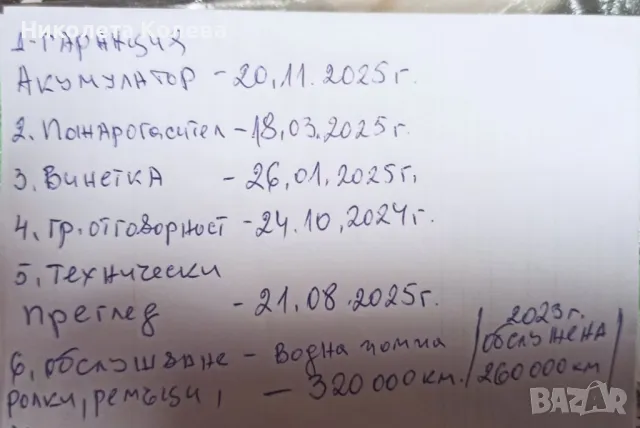 Николета Колева
1-Гаранция
Акумулатор - 20.11.2025г.
2. Пожарогасител - 18.03.2025г.
3. Винетка - 26.01.2025г.
4. Гр. отговорност - 24.10.2024г.
5. Технически
преглед - 21.08.2025г.
6. обслужване - водна помпа
ролки, ремъци, - 320 000 км.
2023г.
обслужена
260 000 км
BAZAR
bg